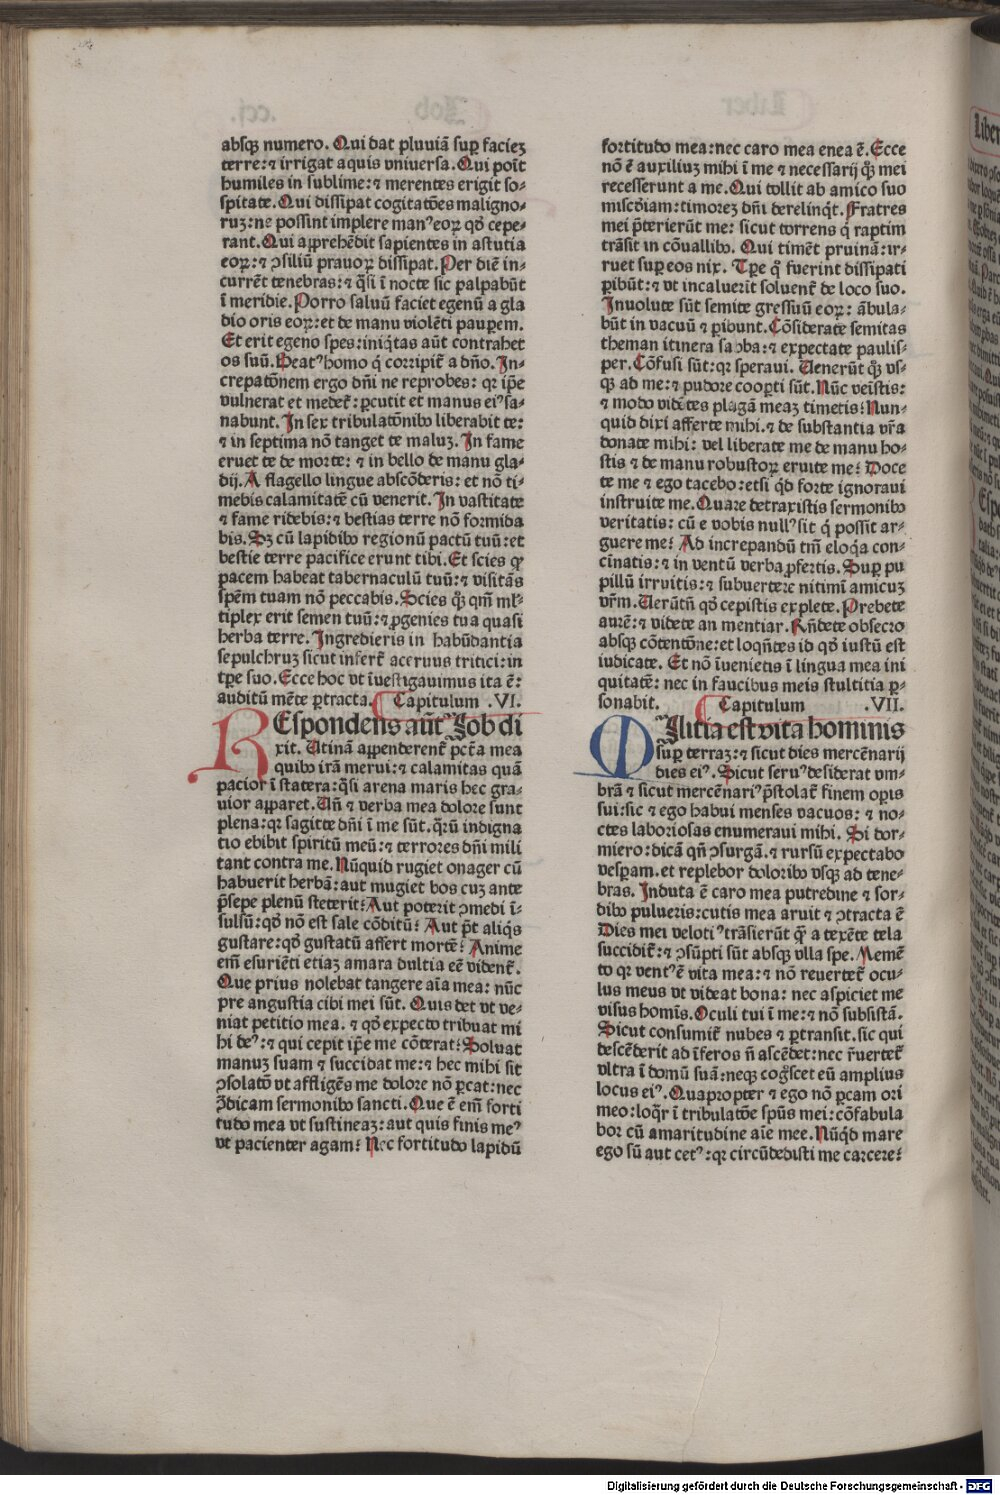 absqꝫ numero. Qui dat pluuiā suꝑ facieꝫ
terre: ⁊ irrigat aquis vniuersa. Qui poīt
humiles in sublime: ⁊ merentes erigit so-
spitate. Qui dissipat cogitatōes maligno-
ruꝫ: ne possint implere manꝰ eoꝝ qḋ cepe-
rant. Qui apprehēdit sapientes in astutia
eoꝝ: ⁊ ↄsiliū prauoꝝ dissipat. Per diē in-
currēt tenebras: ⁊ q̄si ī nocte sic palpabūt
ī meridie. Porro saluū faciet egenū a gla
dio oris eoꝝ: et de manu violēti pauꝑem.
Et erit egeno spes: iniq̇tas aūt contrahet
os suū. Beatꝰ homo q̇ corripit᷑ a dn̄o. In-
crepatōnem ergo dn̄i ne reprobes: qꝛ ip̄e
vulnerat et medet᷑: ꝑcutit et manus eiꝰ sa-
nabunt. In sex tribulatōnibꝰ liberabit te:
⁊ in septima nō tanget te maluꝫ. In fame
eruet te de morte: ⁊ in bello de manu gla-
dij. A flagello lingue abscōderis: et nō ti-
mebis calamitatē cū venerit. In vastitate
⁊ fame ridebis: ⁊ bestias terre nō formida
bis. Sꝫ cū lapidibꝰ regionū pactū tuū: et
bestie terre pacifice erunt tibi. Et scies qꝙ
pacem habeat tabernaculū tuū: ⁊ visitās
spēm tuam nō peccabis. Scies q̊ꝫ qm̄ ml̄-
tiplex erit semen tuū: ⁊ ꝓgenies tua quasi
herba terre. Ingredieris in habūdantia
sepulchruꝫ sicut infert᷑ aceruus tritici: in
tꝑe suo. Ecce hoc vt īuestigauimus ita ē:
auditū mēte ꝑtracta. Capitulum .VI.
REspondens aūt Job di
xit. Utinā appenderent᷑ pctā mea
quibꝰ irā merui: ⁊ calamitas quā
pacior ī statera: q̄si arena maris hec gra-
uior apparet. Un̄ ⁊ verba mea dolore sunt
plena: qꝛ sagitte dn̄i ī me sūt. qꝛū indigna
tio ebibit spiritū meū: ⁊ terrores dn̄i mili
tant contra me. Nūquid rugiet onager cū
habuerit herbā: aut mugiet bos cuꝫ ante
p̄sepe plenū steterit? Aut poterit ↄmedi ī-
sulsū: qḋ nō est sale cōditū? Aut p̄t aliq̇s
gustare: qḋ gustatū affert mortē? Anime
em̄ esuriēti etiaꝫ amara dultia eē vident᷑.
Que prius nolebat tangere aīa mea: nūc
pre angustia cibi mei sūt. Quis det vt ve-
niat petitio mea. ⁊ qḋ expecto tribuat mi
hi deꝰ: ⁊ qui cepit ip̄e me cōterat? Soluat
manuꝫ suam ⁊ succidat me: ⁊ hec mihi sit
ↄsolatō vt affligēs me dolore nō ꝑcat: nec
ↄ̄dicam sermonibꝰ sancti. Que ē em̄ forti
tudo mea vt sustineaꝫ: aut quis finis meꝰ
vt pacienter agam? Nec fortitudo lapidū
fortitudo mea: nec caro mea enea ē. Ecce
nō ē auxiliuꝫ mihi ī me ⁊ necessarij q̊ꝫ mei
recesserunt a me. Qui tollit ab amico suo
misc̄diam: timoreꝫ dn̄i derelinq̇t. Fratres
mei p̄terierūt me: sicut torrens q̇ raptim
trāsit in cōuallibꝰ. Qui timēt pruinā: ir-
ruet suꝑ eos nix. Tꝑe q̊ fuerint dissipati
ꝑibūt: ⁊ vt incaluerīt soluent᷑ de loco suo.
Inuolute sūt semite gressuū eoꝝ: ābula-
būt in vacuū ⁊ ꝑibunt. Cōsiderate semitas
theman itinera sabba: ⁊ expectate paulis-
per. Cōfusi sūt: qꝛ speraui. Uenerūt q̊ꝫ vs-
qꝫ ad me: ⁊ pudore cooꝑti sūt. Nūc venistis:
⁊ modo vidētes plagā meaꝫ timetis? Nun-
quid dixi afferte mihi. ⁊ de substantia vr̄a
donate mihi: vel liberate me de manu ho-
stis ⁊ de manu robustoꝝ eruite me? Doce
te me ⁊ ego tacebo: etsi q̇d forte ignoraui
instruite me. Quare detraxistis sermonibꝰ
veritatis: cū e vobis nullꝰ sit q̇ possit ar-
guere me? Ad increpandū tm̄ eloq̇a con-
cinatis: ⁊ in ventū verba ꝓfertis. Suꝑ pu
pillū irruitis: ⁊ subuertere nitimī amicuꝫ
vr̄m. Uerūtn̄ qḋ cepistis explete. Prebete
aurē: ⁊ videte an mentiar. Rn̄dete obsecro
absqꝫ cōtentōne: et loqn̄tes id qḋ iustū est
iudicate. Et nō īuenietis ī lingua mea ini
quitatē: nec in faucibus meis stultitia ꝑ-
sonabit. Capitulum .VII.
MIlitia est vita hominis
suꝑ terraꝫ: ⁊ sicut dies mercēnarij
dies eiꝰ. Sicut seruꝰ desiderat vm-
brā ⁊ sicut mercēnariꝰ p̄stolat᷑ finem oꝑis
sui: sic ⁊ ego habui menses vacuos: ⁊ no-
ctes laboriosas enumeraui mihi. Si dor-
miero: dicā qn̄ ↄsurgā. ⁊ rursū expectabo
vesꝑam. et replebor doloribꝰ vsqꝫ ad tene-
bras. Induta ē caro mea putredine ⁊ sor-
dibꝰ pulueris: cutis mea aruit ⁊ ↄtracta ē
Dies mei velotiꝰ trāsierūt q̄ꝫ a texēte tela
succidit᷑: ⁊ ↄsūpti sūt absqꝫ vlla spe. Memē
to qꝛ ventꝰ ē vita mea: ⁊ nō reuertet᷑ ocu-
lus meus vt videat bona: nec aspiciet me
visus homīs. Oculi tui ī me: ⁊ nō subsistā.
Sicut consumit᷑ nubes ⁊ ꝑtransit. sic qui
descēderit ad īferos n̄ ascēdet: nec r̄uertet᷑
vltra ī domū suā: neqꝫ cogscet eū amplius
locus eiꝰ. Quapropter ⁊ ego nō ꝑcam ori
meo: loq̄r ī tribulatōe spūs mei: cōfabula
bor cū amaritudine aīe mee. Nūq̇d mare
ego sū aut cetꝰ: qꝛ circūdedisti me carcere?
Digitalisierung gefördert durch die Deutsche Forschungsgemeinschaft - DFG